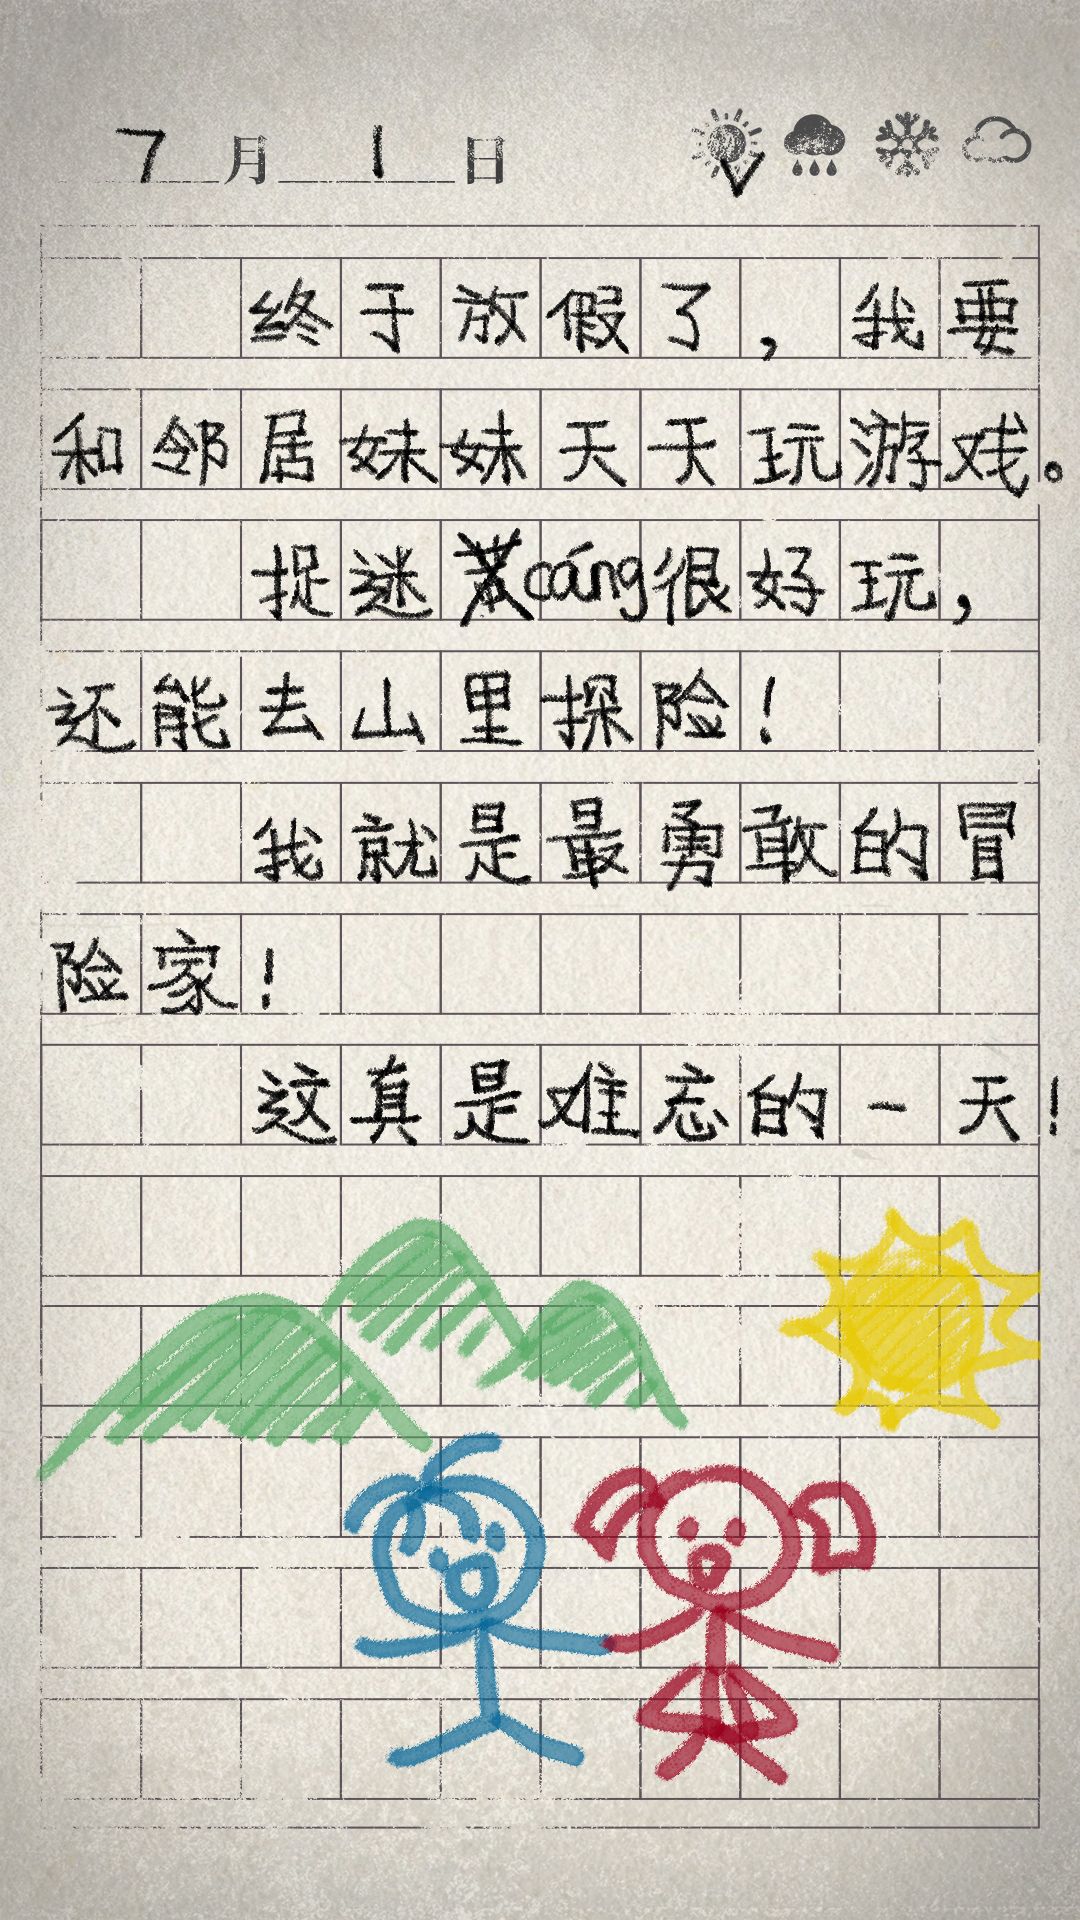 7月1日
终于放假了，我要
和邻居妹妹天天玩游戏。
捉迷cáng很好玩，
还能去山里探险！
我就是最勇敢的冒
险家！
这真是难忘的一天！